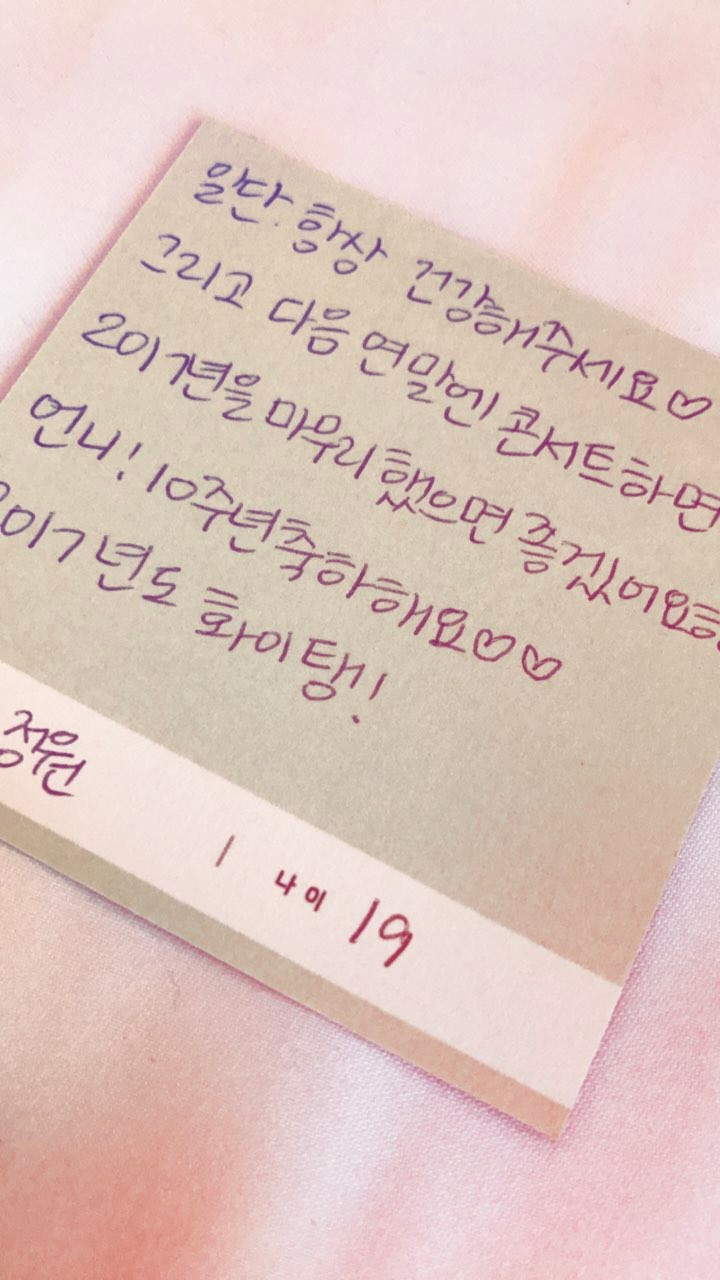 일단. 항상 건강해주세요♡
그리고 다음 연말엔 콘서트하면
2017년을 마무리했으면 좋겠어요
언니! 10주년축하해요♡♡
2017년도 화이팅!
정원
1 나이 19